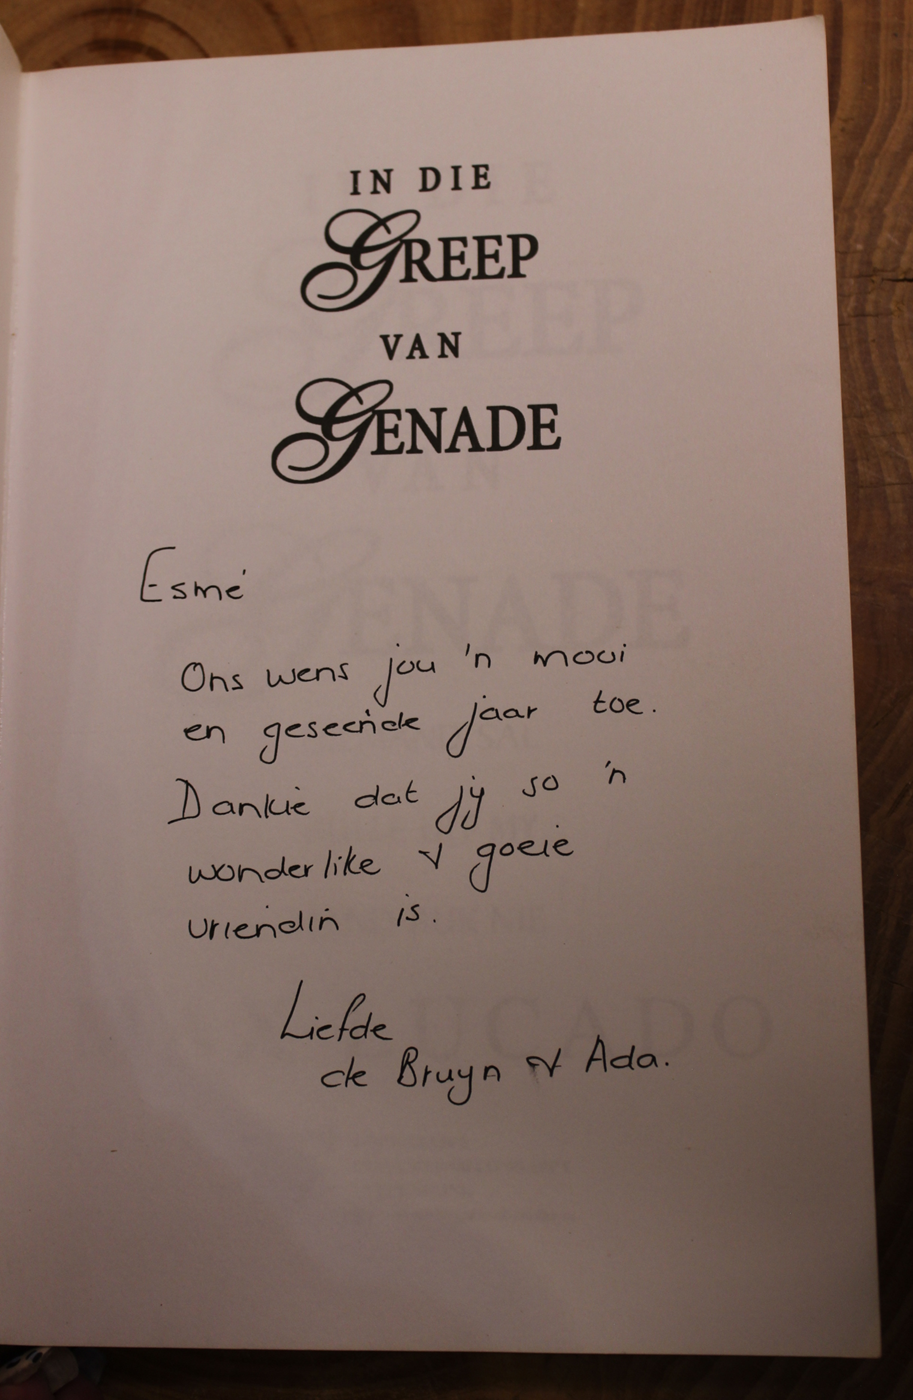 IN DIE
GREEP
VAN
GENADE
Esmé
Ons wens jou 'n mooi
en geseënde jaar toe.
Dankie dat jy so 'n
wonderlike & goeie
vriendin is.
Liefde
de Bruyn & Ada.